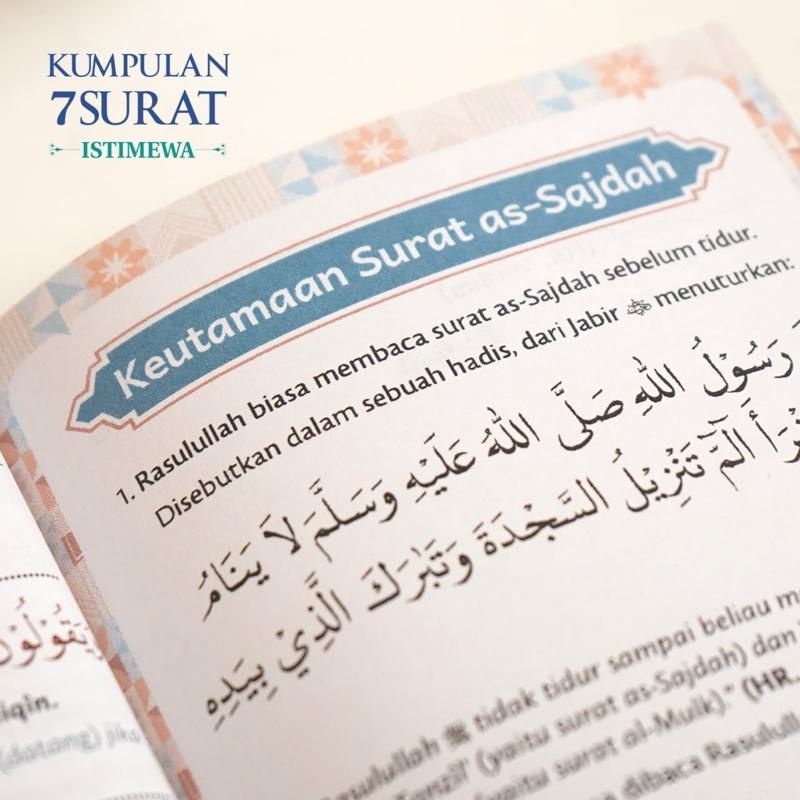 KUMPULAN
7SURAT
ISTIMEWA
Keutamaan Surat as-Sajdah
1. Rasulullah biasa membaca surat as-Sajdah sebelum tidur.
Disebutkan dalam sebuah hadis, dari Jabir menuturkan:
رَسُوْلُ اللهِ صَلَّى اللهُ عَلَيْهِ وَسَلَّمَ لَا يَنَامُ
الٓمّٓ تَنْزِيْلُ السَّجْدَةَ وَتَبٰرَكَ الَّذِيْ بِيَدِهِ
Rasulullah ﷺ tidak tidur sampai beliau
Tanzil' (yaitu surat as-Sajdah) dan
(yaitu surat al-Mulk)." (HR.
dibaca
يَقُوْلُوْنَ
iqin.
(datang) jika